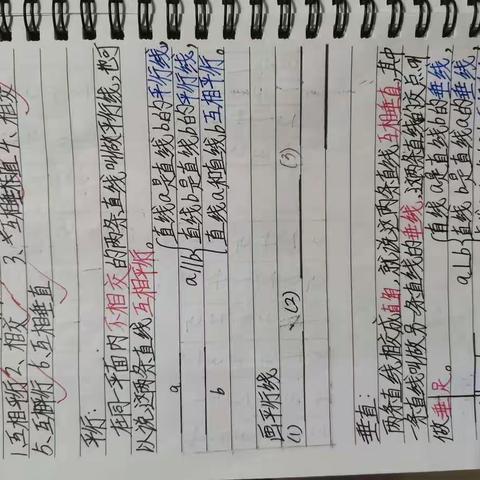 1互相平行 2、相交 3、互相垂直 4、相交
5、互相平行 6、互相垂直
平行：
在同一平面内不相交的两条直线叫做平行线，也可
以说这两条直线互相平行。
a
b
a//b
直线a是直线b的平行线，
直线b是直线a的平行线，
直线a和直线b互相平行。
画平行线
(1) (2) (3)
垂直：
两条直线相交成直角，就说这两条直线互相垂直，其中
一条直线叫做另一条直线的垂线，这两条直线的交点叫
做垂足。
a⊥b
直线a是直线b的垂线，
直线b是直线a的垂线，